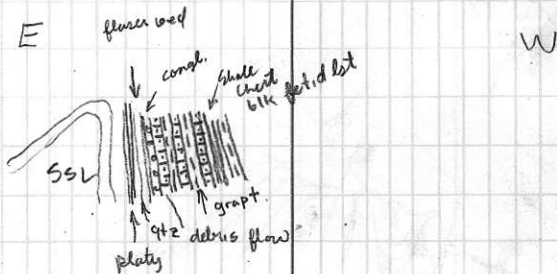 E
W
flaser bed
congl.
shale
chert
blk fetid lst
SSL
qtz
debris flow
grapt.
platy